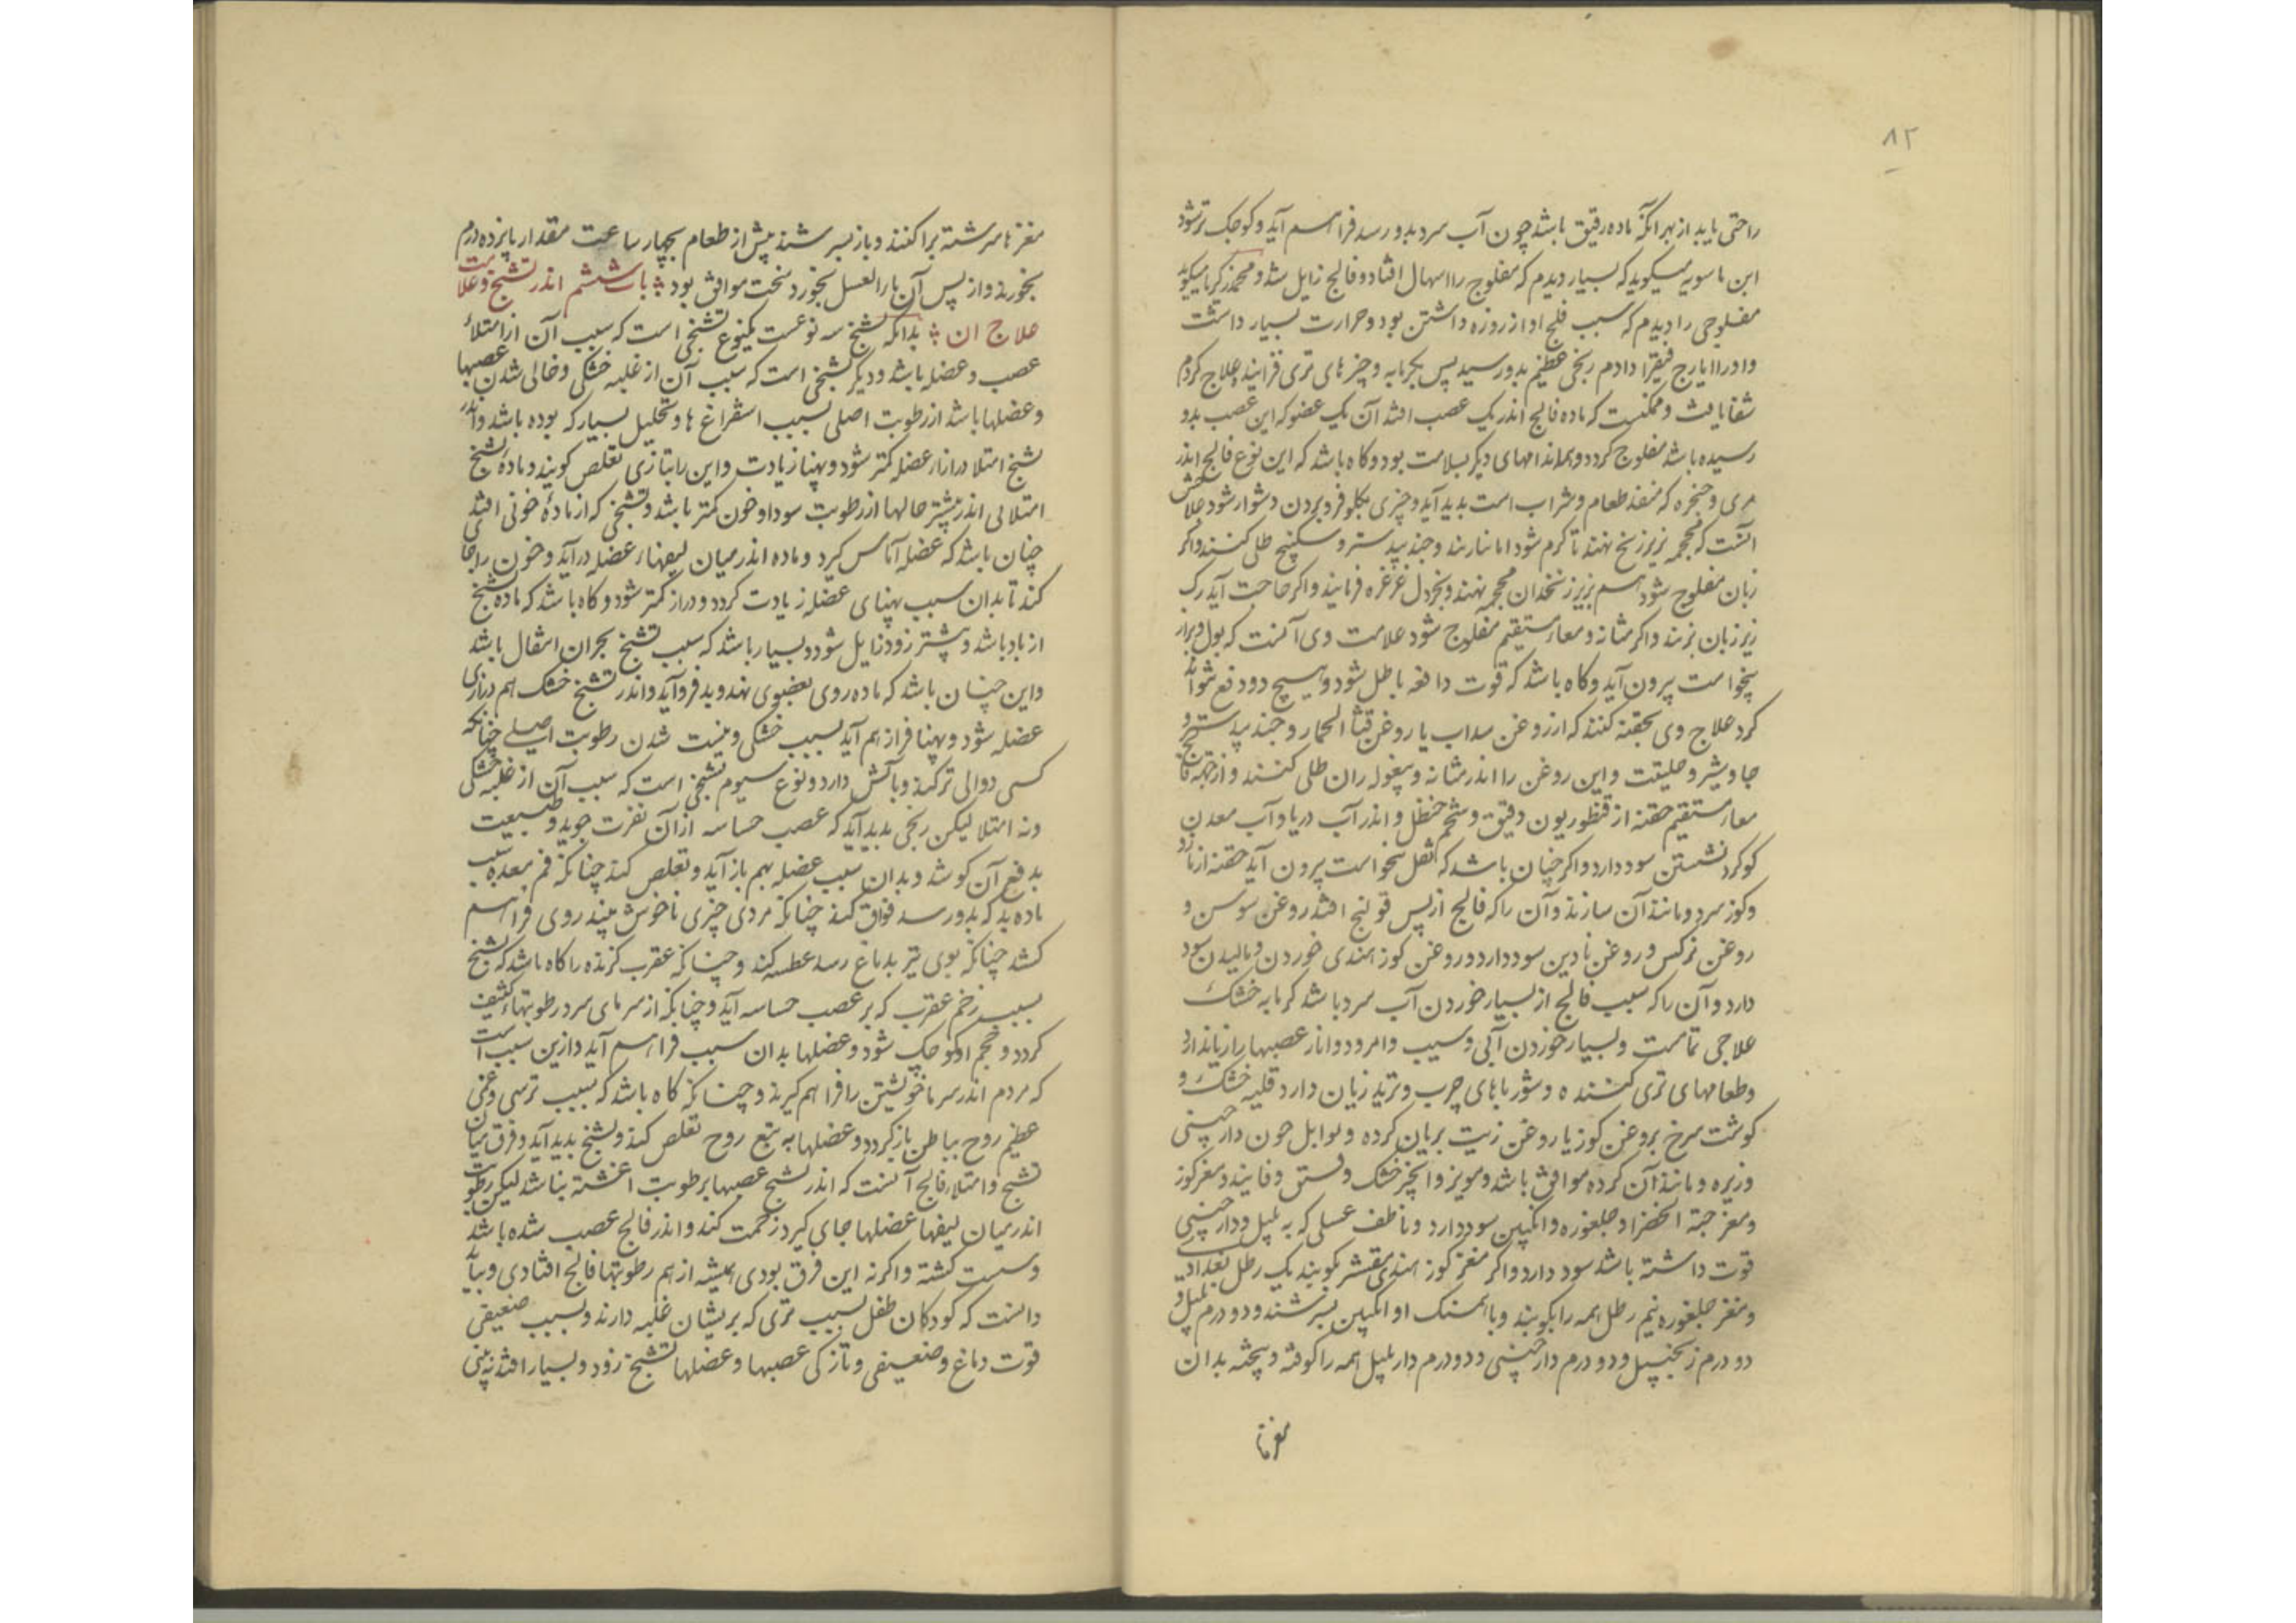 ۸۲
راحتی یابد از بهر آنکه ماده رقیق باشد چون آب سرد بدو رسد فراهم آید و کوچک تر شود
ابن ماسویه میکوید که بسیار دیدم که مفلوج را اسهال افتاد و فالج زایل شد و محمد زکریا میکوید
مفلوجی را دیدم که سبب فلج او از روزه داشتن بود و حرارت بسیار داشت
و او را ایارج فیقرا دادم رنجی عظیم بدو رسید پس بکرمابه و چیزهای تری فزاینده علاج کردم
شفا یافت و ممکنست که ماده فالج اندر یک عصب افتد آن یک عضو که این عصب بدو
رسیده باشد مفلوج کردد و همه اندامهای دیکر بسلامت بود و کاه باشد که این نوع فالج اندر
مری و حنجره که منفذ طعام و شراب است بدید آید و چیزی بکلو فرو بردن دشوار شود علاجش
آنست که محجمه بزیر زنخ نهند تا کرم شود اما نیازند و جندبیدستر و سکبینج طلی کنند و اکر
زبان مفلوج شود هم بزیر زنخدان محجمه نهند و بخردل غرغره فرمایند و اکر حاجت آید رک
زیر زبان بزنند و اکر مثانه و معاء مستقیم مفلوج شود علامت وی آنست که بول و براز
بیخواست بیرون آید و کاه باشد که قوت دافعه باطل شود و هیچ دو دفع نتواند
کرد علاج وی بحقنه کنند که از روغن سداب یا روغن قثا الحمار و جندبیدستر و
جاوشیر و حلتیت و این روغن را اندر مثانه و بیغوله ران طلی کنند و از جهة فالج
معاء مستقیم حقنه از قنطوریون دقیق و شحم حنظل و اندر آب دریا و آب معدن
کوکرد نشستن سود دارد و اکر چنان باشد که ثفل بیخواست بیرون آید حقنه از مازو
و کوز سرو و مانند آن سازند و آن را که فالج از پس قولنج افتد روغن سوسن و
روغن نرکس و روغن ناردین سود دارد و روغن کوز هندی خوردن و مالیدن سود
دارد و آن را که سبب فالج از بسیار خوردن آب سرد باشد کرمابه خشک
علاجی تمامست و بسیار خوردن آبی و سیب و امرود و انار عصبها را زیان دارد
و طعامهای تری کننده و شورباهای چرب و ترید زیان دارد قلیه خشک و
کوشت سرخ بروغن کوز یا روغن زیت بریان کرده و توابل چون دارچینی
و زیره و مانند آن کرده موافق باشد و مویز و انجیر خشک و فستق و فانیذ و مغز کوز
و مغز حبة الخضرا و جلغوزه و انکبین سود دارد و ناطف عسلی که به پلپل و دارچینی
قوت داشته باشد سود دارد و اکر مغز کوز هندی مقشر بکوبند یک رطل بغدادی
و مغز جلغوزه نیم رطل همه را بکوبند و با همسنک او انکبین بسرشند و دو درم پلپل و
دو درم زنجبیل و دو درم دارچینی و دو درم دارپلپل همه را کوفته و بیخته بدان
مغزها
مغزها سرشته برا کنند و باز بسرشند پیش از طعام بچهار ساعت مقدار پانزده درم
بخورند و از پس آن ماء العسل بخورد سخت موافق بود باب ششم اندر تشنج و علامت
علاج آن بدانکه تشنج سه نوعست یکنوع تشنجی است که سبب آن از امتلاء
عصب و عضله باشد و دیکر تشنجی است که سبب آن از غلبه خشکی و خالی شدن عصبها
و عضلها باشد از رطوبت اصلی بسبب استفراغ ها و تحلیل بسیار که بوده باشد و اندر
تشنج امتلا درازاء عضله کمتر شود و پهنا زیادت و این را بتازی تقلص کویند و ماده تشنج
امتلائی اندر بیشتر حالها از رطوبت سودا و خون کمتر باشد و تشنجی که از مادۀ خونی افتد
چنان باشد که عضله آماس کیرد و ماده اندر میان لیفهاء عضله درآید و خون را جا
کند تا بدان سبب پهنای عضله زیادت کردد و دراز کمتر شود و کاه باشد که ماده تشنج
از باد باشد و بیشتر زود زایل شود و بسیار باشد که سبب تشنج بحران انتقال باشد
و این چنان باشد که ماده روی بعضوی نهد و بدو فرو آید و اندر تشنج خشک هم درازی
عضله شود و پهنا فراز هم آید بسبب خشکی و نیست شدن رطوبت اصلی چنانکه
کسی دوالی تر کند و باتش دارد و نوع سیوم تشنجی است که سبب آن از غلبه خشکی
و نه امتلا لیکن رنجی بدید آید که عصب حساسه از آن نفرت جوید و طبیعت
بدفع آن کوشد و بدان سبب عضله بهم باز آید و تقلص کند چنانکه فم معده بسبب
ماده بد که بدو رسد فواق کند چنانکه مردی چیزی ناخوش بیند روی فراهم
کشد چنانکه بوی تیز بدماغ رسد عطسه کند و چنانکه عقرب کزنده را کاه باشد که تشنج
بسبب زخم عقرب که بر عصب حساسه آید و چنانکه از سرمای سرد رطوبتهاء کثیف
کردد و حجم او کوچک شود و عضلها بدان سبب فراهم آید و ازین سبب است
که مردم اندر سرما خویشتن را فراهم کیرند و چنانکه کاه باشد که بسبب ترسی و غمی
عظیم روح بباطن باز کردد و عضلها به تبع روح تقلص کند و تشنج بدید آید و فرق میان
تشنج و امتلاء فالج آنست که اندر تشنج عصبها برطوبت اغشته نباشد لیکن رطوبت
اندر میان لیفهاء عضلها جای کیرد زحمت کند و اندر فالج عصب شده باشد
و سست کشته و اکر نه این فرق بودی همیشه از هم رطوبتها فالج افتادی و بباید
دانست که کودکان طفل بسبب تری که بر یشان غلبه دارند و بسبب ضعیفی
قوت دماغ و ضعیفی و تازکی عصبها و عضلها تشنج زود و بسیار افتد نه بینی